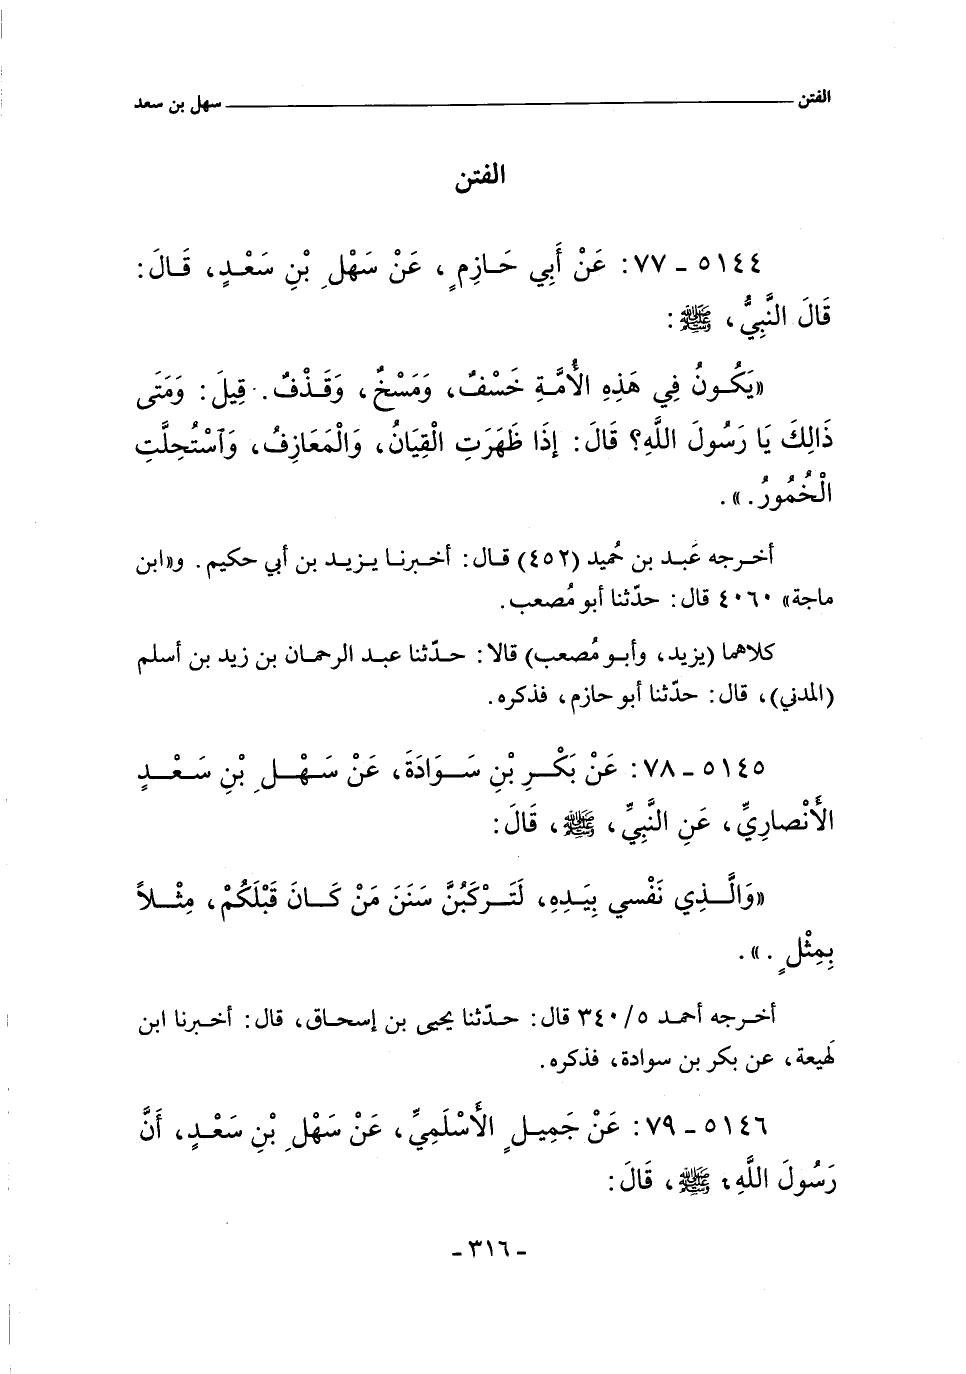 الفتن ـــــ سهل بن سعد
الفتن
٥١٤٤ ـ ٧٧: عَنْ أَبِي حَازِمٍ، عَنْ سَهْلِ بْنِ سَعْدٍ، قَالَ:
قَالَ النَّبِيُّ، ﷺ:
«يَكُونُ فِي هَذِهِ الأُمَّةِ خَسْفٌ، وَمَسْخٌ، وَقَذْفٌ. قِيلَ: وَمَتَى
ذَالِكَ يَا رَسُولَ اللَّهِ؟ قَالَ: إِذَا ظَهَرَتِ الْقِيَانُ، وَالْمَعَازِفُ، وَٱسْتُحِلَّتِ
الْخُمُورُ.».
أخرجه عَبد بن حُميد (٤٥٢) قال: أخبرنا يزيد بن أبي حكيم. و«ابن
ماجة» ٤٠٦٠ قال: حدّثنا أبو مُصعب.
كلاهما (يزيد، وأبو مُصعب) قالا: حدّثنا عبد الرحمان بن زيد بن أسلم
(المدني)، قال: حدّثنا أبو حازم، فذكره.
٥١٤٥ ـ ٧٨: عَنْ بَكْرِ بْنِ سَوَادَةَ، عَنْ سَهْلِ بْنِ سَعْدٍ
الأَنْصارِيِّ، عَنِ النَّبِيِّ، ﷺ، قَالَ:
«وَالَّذِي نَفْسي بِيَدِهِ، لَتَرْكَبُنَّ سَنَنَ مَنْ كَانَ قَبْلَكُمْ، مِثْلاً
بِمِثْلٍ.».
أخرجه أحمد ٥/ ٣٤٠ قال: حدّثنا يحيى بن إسحاق، قال: أخبرنا ابن
لَهيعة، عن بكر بن سوادة، فذكره.
٥١٤٦ ـ ٧٩: عَنْ جَمِيلٍ الأَسْلَمِيِّ، عَنْ سَهْلِ بْنِ سَعْدٍ، أَنَّ
رَسُولَ اللَّهِ، ﷺ، قَالَ:
ـ ٣١٦ ـ